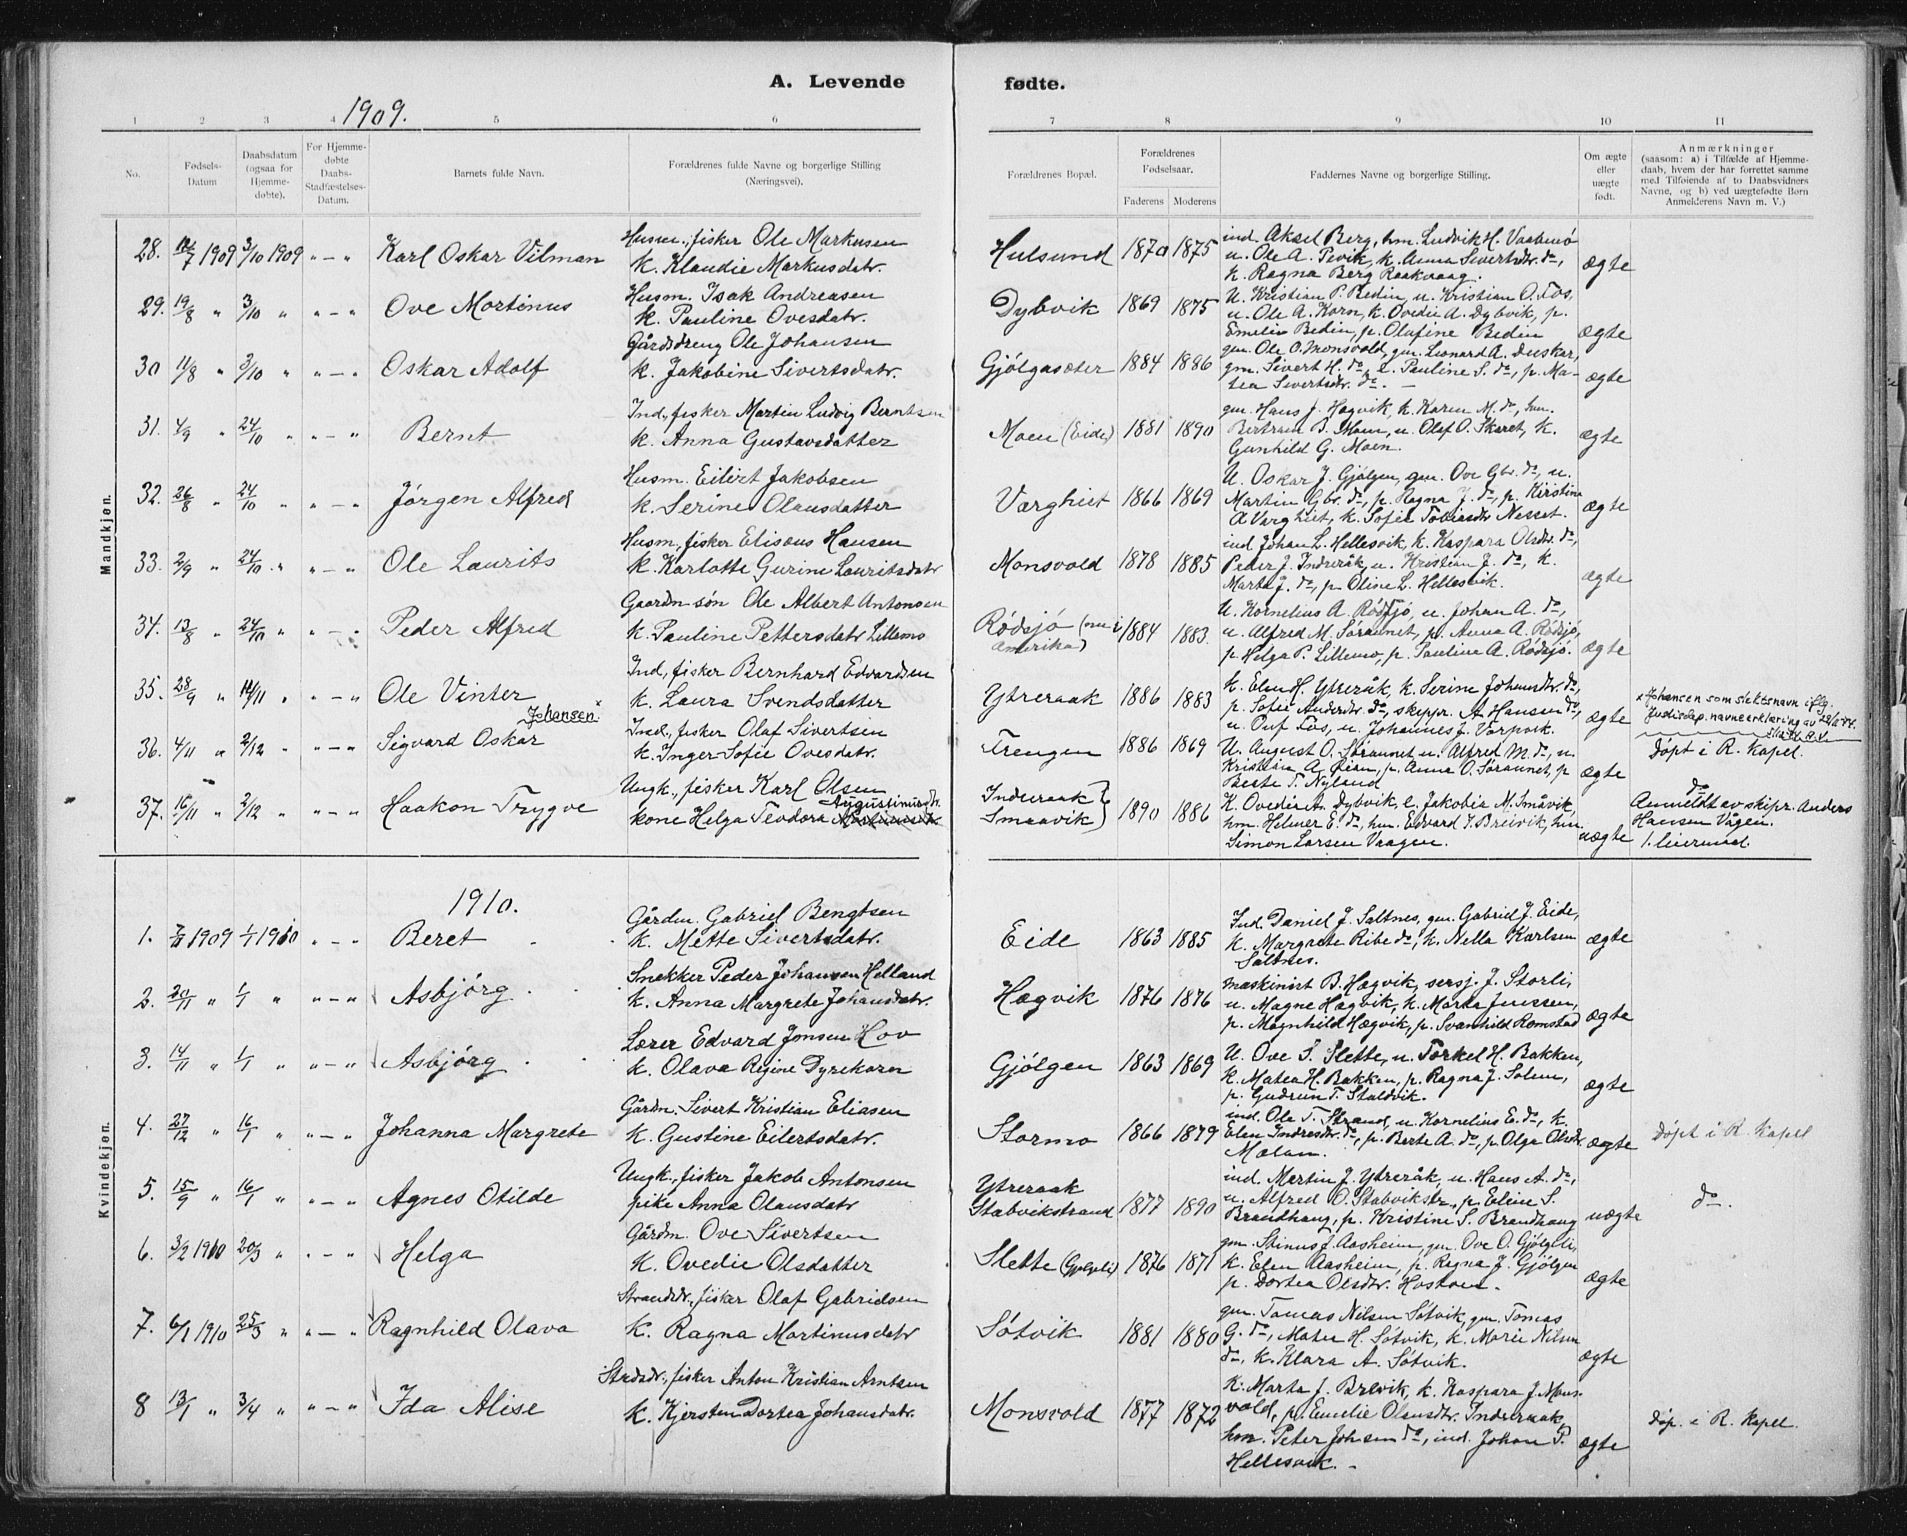 A. Levende fødte.
1909.
1 2 3 4 5 6 7 8 9 10 11
No.
Fødsels-
Datum
Daabsdatum
(ogsaa for
Hjemme-
døbte).
For Hjemme-
døbte
Daabs-
Stadfæstelses-
Datum.
Barnets fulde Navn.
Forældrenes fulde Navne og borgerlige Stilling
(Næringsvei).
Forældrenes Bopæl.
Forældrenes
Fødselsaar.
Faderens Moderens
Faddernes Navne og borgerlige Stilling.
Om ægte
eller
uægte
født.
Anmærkninger
(saasom: a) i Tilfælde af Hjemme-
daab, hvem der har forrettet samme
med Tilføiende af to Daabsvidners
Navne, og b) ved uægtefødte Børn
Anmelderens Navn m. V.)
Mandkjøn.
28. 1909 3/10 1909 " — " Karl Oskar Vilman
Husm., fisker Ole Markusen
k. Klaudie Markusdatr.
Hulsund 1870 1875
ind. Aksel Berg, hm. Ludvik H. Vaabenø
u. Ole A. Pevik, k. Anna Sivertsdtr. do,
k. Ragna Berg Raakvaag.
ægte
29. 19/8 " 3/10 " " — " Ove Martinus
Husm. Isak Andreasen
k. Pauline Ovesdatr.
Dybvik 1869 1875
U. Kristian P. Redin, u. Kristian O. Fos,
u. Ole A. Korn, k. Ovedie A. Dybvik, p.
Emelie Bedin, p. Olafine Bedin
ægte
30 11/8 " 3/10 " " — " Oskar Adolf
Gårdsdreng Ole Johansen
k. Jakobine Sivertsdatr.
Gjølgasæter 1884 1886
gm. Ole O. Monsvold, gm. Leonard A. Duskar,
gm. Sivert H. do, e. Pauline S. do, p. Ma-
tea Sivertsdtr. do. —
ægte
31. 4/9 " 24/10 " " — " Bernt
Ind., fisker Martin Ludvig Berntsen
k. Anna Gustavsdatter
Moen (Eide) 1881 1890
gm. Hans J. Hagvik, k. Karen M. do, hm.
Bertram B. Moen, u. Olaf O. Skaret, k.
Gunhild G. Moen.
ægte
32. 26/8 " 24/10 " " — " Jørgen Alfred
Husm. Eilert Jakobsen
k. Serine Olausdatter
Varghiet 1866 1869
U. Oskar J. Gjølgen, gm. Ove Gbr. do, u.
Martin Gbr. do, p. Ragna J. do, p. Kirstine
A Varghiet, k. Sofie Tobiasdtr Nesset.
ægte
33. 2/9 " 24/10 " " — " Ole Laurits
Husm., fisker Elisæus Hansen
k. Karlotte Gurine Lauritsdatr
Monsvold 1878 1885
ind Johan L. Hellesvik, k. Kaspara Olsdtr. do,
Peder J. Indreråk, u. Kristian J. do, k.
Marta J. do, p Oline L. Hellesvik.
ægte
34. 13/8 " 24/10 " " — " Peder Alfred
Gaardm søn Ole Albert Antonsen
k. Pauline Pettersdatr Lillemo
Rødsjø (nu i
Amerika) 1884 1883.
U. Kornelius A Rødsjø, u. Johan A. do,
u. Alfred M. Søraunet, p. Anna A. Rødsjø,
p. Helga P. Lillemo, p. Pauline A. Rødsjø.
ægte
35. 28/9 " 14/11 " " — " Ole Vinter
Johansen x
Ind, fisker Bernhard Edvardsen
k. Laura Svendsdatter
Ytreraak 1886 1883
k. Elen H. Ytreråk, k. Serine Johansdtr. do,
p. Sofie Andersdtr. do, skippr. A. Hansen do,
u. Ouf Fos, u. Johannes J. Varpvik.
ægte
x Johansen som slektsnavn iflg.
Justisdep. navneerklæring av
36. 4/11 " 2/12 " " — " Sigvard Oskar
Ind., fisker Olaf Sivertsen
k. Inger Sofie Ovesdatr.
Trengen 1886 1869
U. August O. Søraunet u. Alfred M. do, u
Kristian A. Øian, p. Anna O. Søraunet, p
Berte T. Nyland
ægte
Døpt i R. Kapel.
37. 16/11 " 2/12 " " — " Haakon Trygve
Ungk., fisker Karl Olsen
Augustinusdtr.
kone Helga Teodora
Inderaak }
Smaavik } 1890 1886
K. Ovedie A. Dybvik, e. Jakobia M. Småvik,
hm. Helmer E. do, hm. Edvard J. Breivik, hm.
Simon Larsen Vaagen.
uægte
do
Anmeldt av skipr. Anders
Hansen Vågen.
Kvindekjøn.
1910.
1. 1909 1/1 1910 " — " Beret
Gårdm. Gabriel Bengtsen
k. Mette Sivertsdatr.
Eide 1863 1885
Ind. Daniel J. Saltnes, gm. Gabriel J. Eide,
k. Margrete Ribe do, k. Nella Karlsen
Saltnes.
ægte
2. 20/11 " 1/1 " " — " Asbjørg
Snekker Peder Johansen Helland
k. Anna Margrete Johansdatr.
Hægvik 1876 1876
maskinist B. Hægvik, sersj. J. Storli,
u. Magne Hægvik, k. Marta Jenssen,
p. Magnhild Hægvik, p. Svanhild Romstad
ægte
3. 14/11 " 1/1 " " — " Asbjørg
Lærer Edvard Jonsen Hov
k. Olava Regine Dyrekaren
Gjølgen 1863 1869
U. Ove S. Slette, u. Torkel H. Bakken,
k. Matea H. Bakken, p. Ragna J. Solem,
p. Gudrun T. Staldvik.
ægte
4. 27/12 " 16/1 " " — " Johanna Margrete
Gårdm. Sivert Kristian Eliasen
k. Gustine Eilertsdatr.
Stormo 1866 1879
ind. Ole T. Strand, u. Kornelius E. do, k.
Elen Indresdtr. do, p. Berte A. do, p Olga Olsdtr.
Mælan.
ægte
Døpt i R. Kapel
5. 15/9 " 16/1 " " — " Agnes Otilde
Ungk., fisker Jakob Antonsen
pike Anna Olausdatr
Ytreraak
Stabvikstrand 1877 1890
ind. Martin J. Ytreråk, u. Hans A. do,
u. Alfred O. Stabvikstr., p. Eline S.
Brandhaug, p. Kristine S. Brandhaug
uægte
do.
6. 3/2 1910 20/3 " " — " Helga
Gårdm. Ove Sivertsen
k. Ovedie Olsdatter
Slette (Gjølgli) 1876 1871
gm. Stinus J. Aasheim, gm. Ove O. Gjølgli,
k. Elen Aasheim, p. Ragna J. Gjølgen
p. Dortea Olsdtr. Hostoen. —
ægte
7. 6/1 1910 25/3 " " — " Ragnhild Olava
Strandsdr., fisker Olaf Gabrielsen
k. Ragna Martinusdatr
Søtvik 1881 1880
gm. Tomas Nilsen Søtvik, gm. Tomas
G. do, Matea H. Søtvik, k. Marie Nilsen
do, k. Klara A. Søtvik.
ægte
8 13/1 " 3/4 " " — " Ida Alise
Strdsdr., fisker Anton Kristian Arntsen
k. Kjersten Dortea Johansdatr.
Monsvold 1877 1872
K. Marta J. Brevik, k. Kaspara J. Mons-
vold, p. Emelie Olausdtr. Indreraak,
hm. Peter Johsen do, ind. Johan P.
Hellesvik. —
ægte
Døp. i R. Kapel.